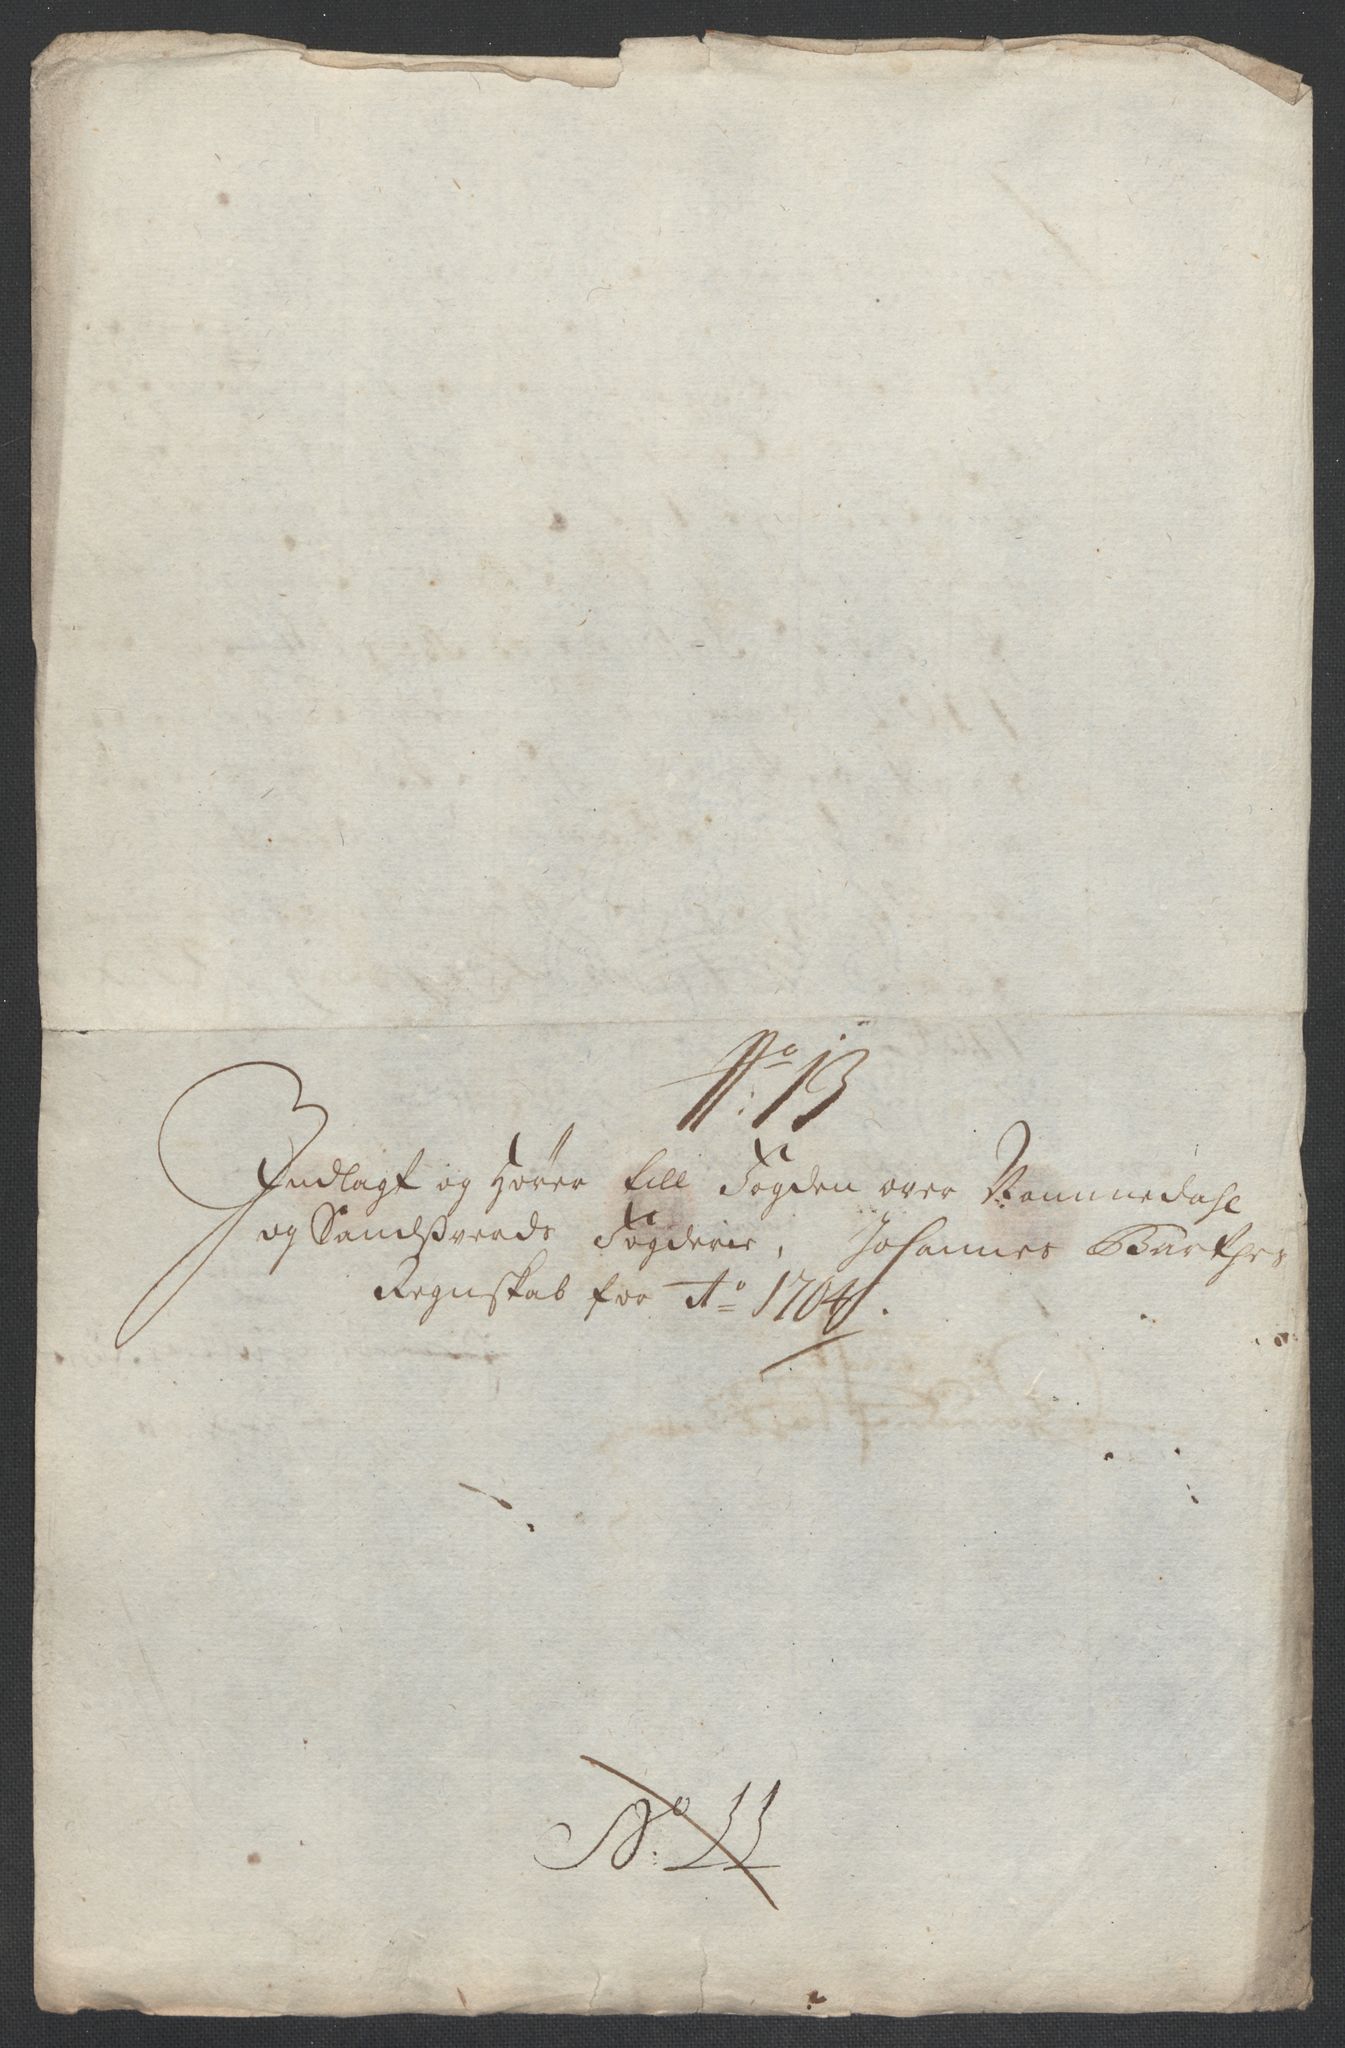 No: 13
Indlagt og Hører till Fogden over Nommedahl
og Sandßverds Fögderie, Johannes Barthes
Regnskab for Ao 1704.
No: 11